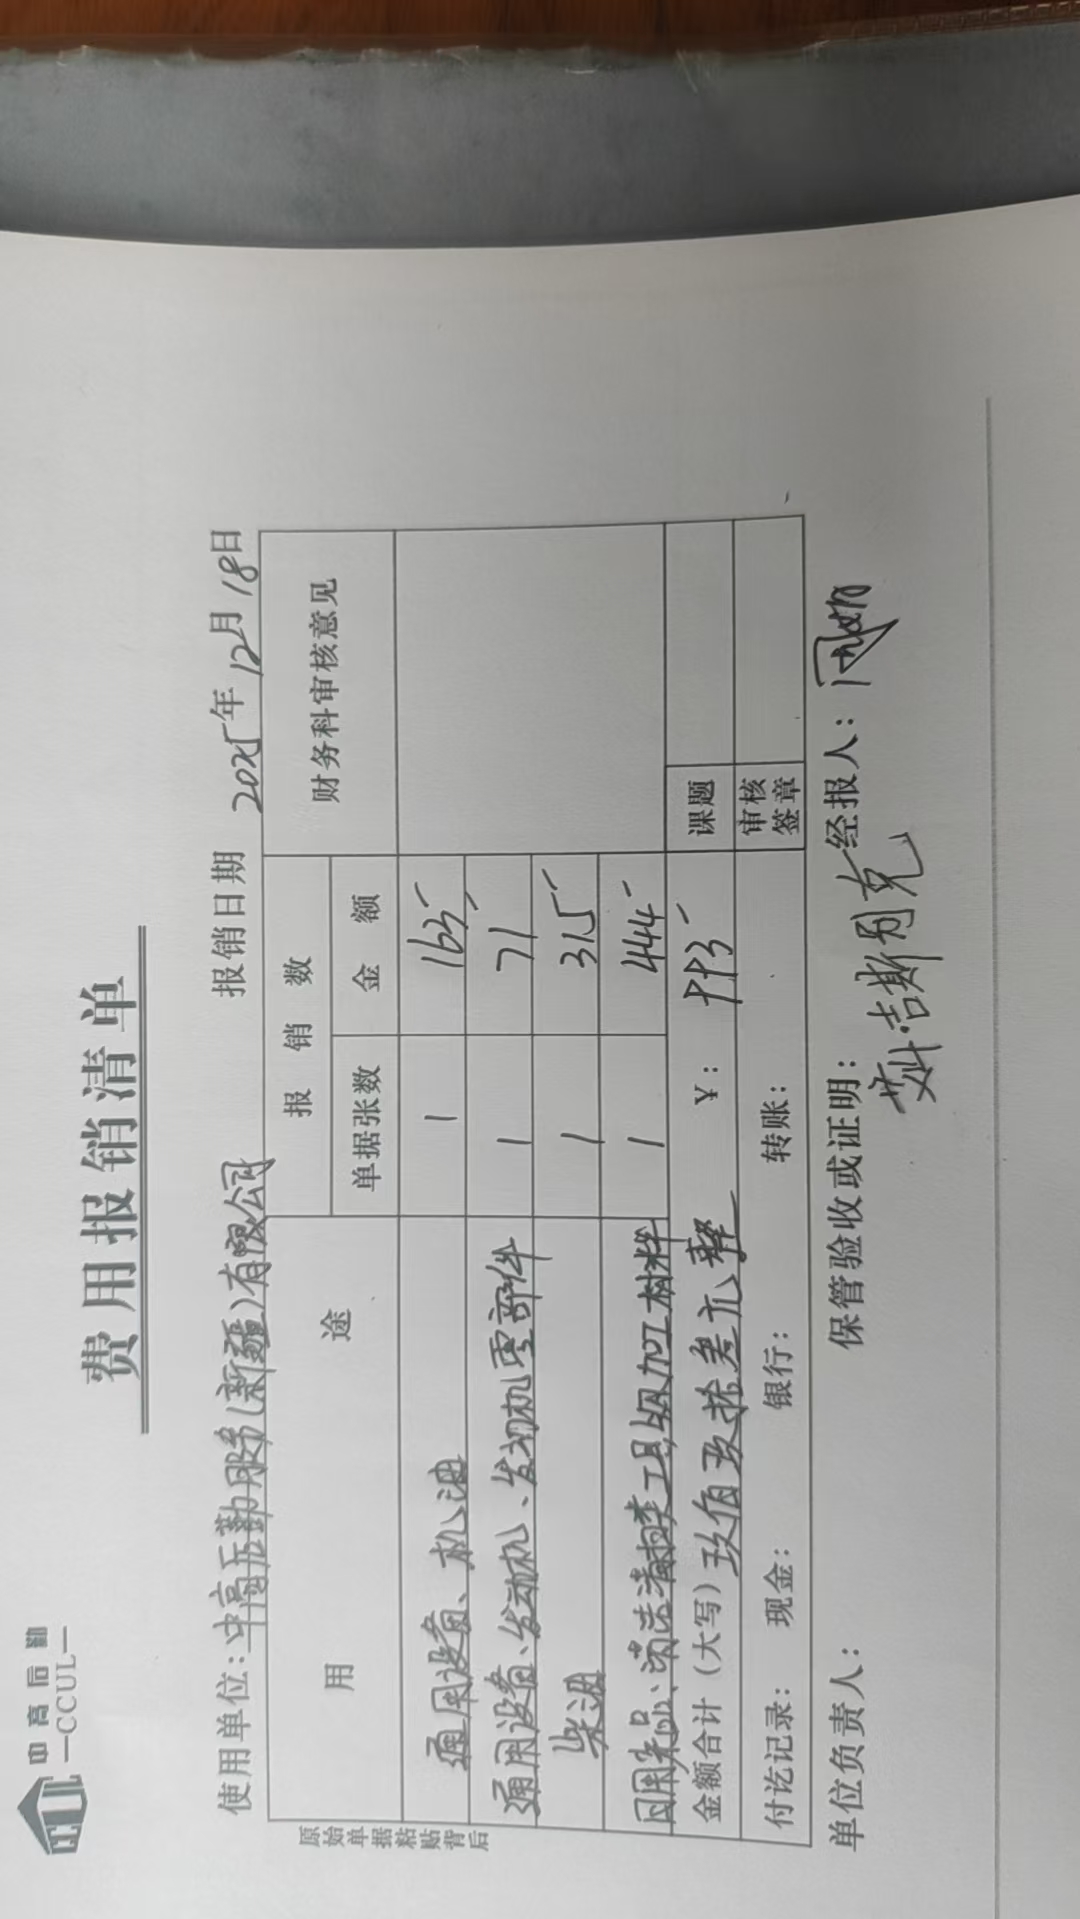 中高后勤
—CCUL—
费用报销清单
使用单位：中高后勤服务（新疆）有限公司 报销日期 2025年12月18日
用 途 报 销 数 财务科审核意见
单据张数 金 额
通用设备、机油 1 163-
通用设备、发动机、发动机零部件 1 71-
柴油 1 315-
日用杂品、清洁类工具、级加工材料 1 444-
金额合计（大写）玖佰玖拾叁元整 ￥：993- 课题
付讫记录： 现金： 银行： 转账： 审核签章
单位负责人： 保管验收或证明： 经报人：
吉斯别克
原始单据粘贴背后